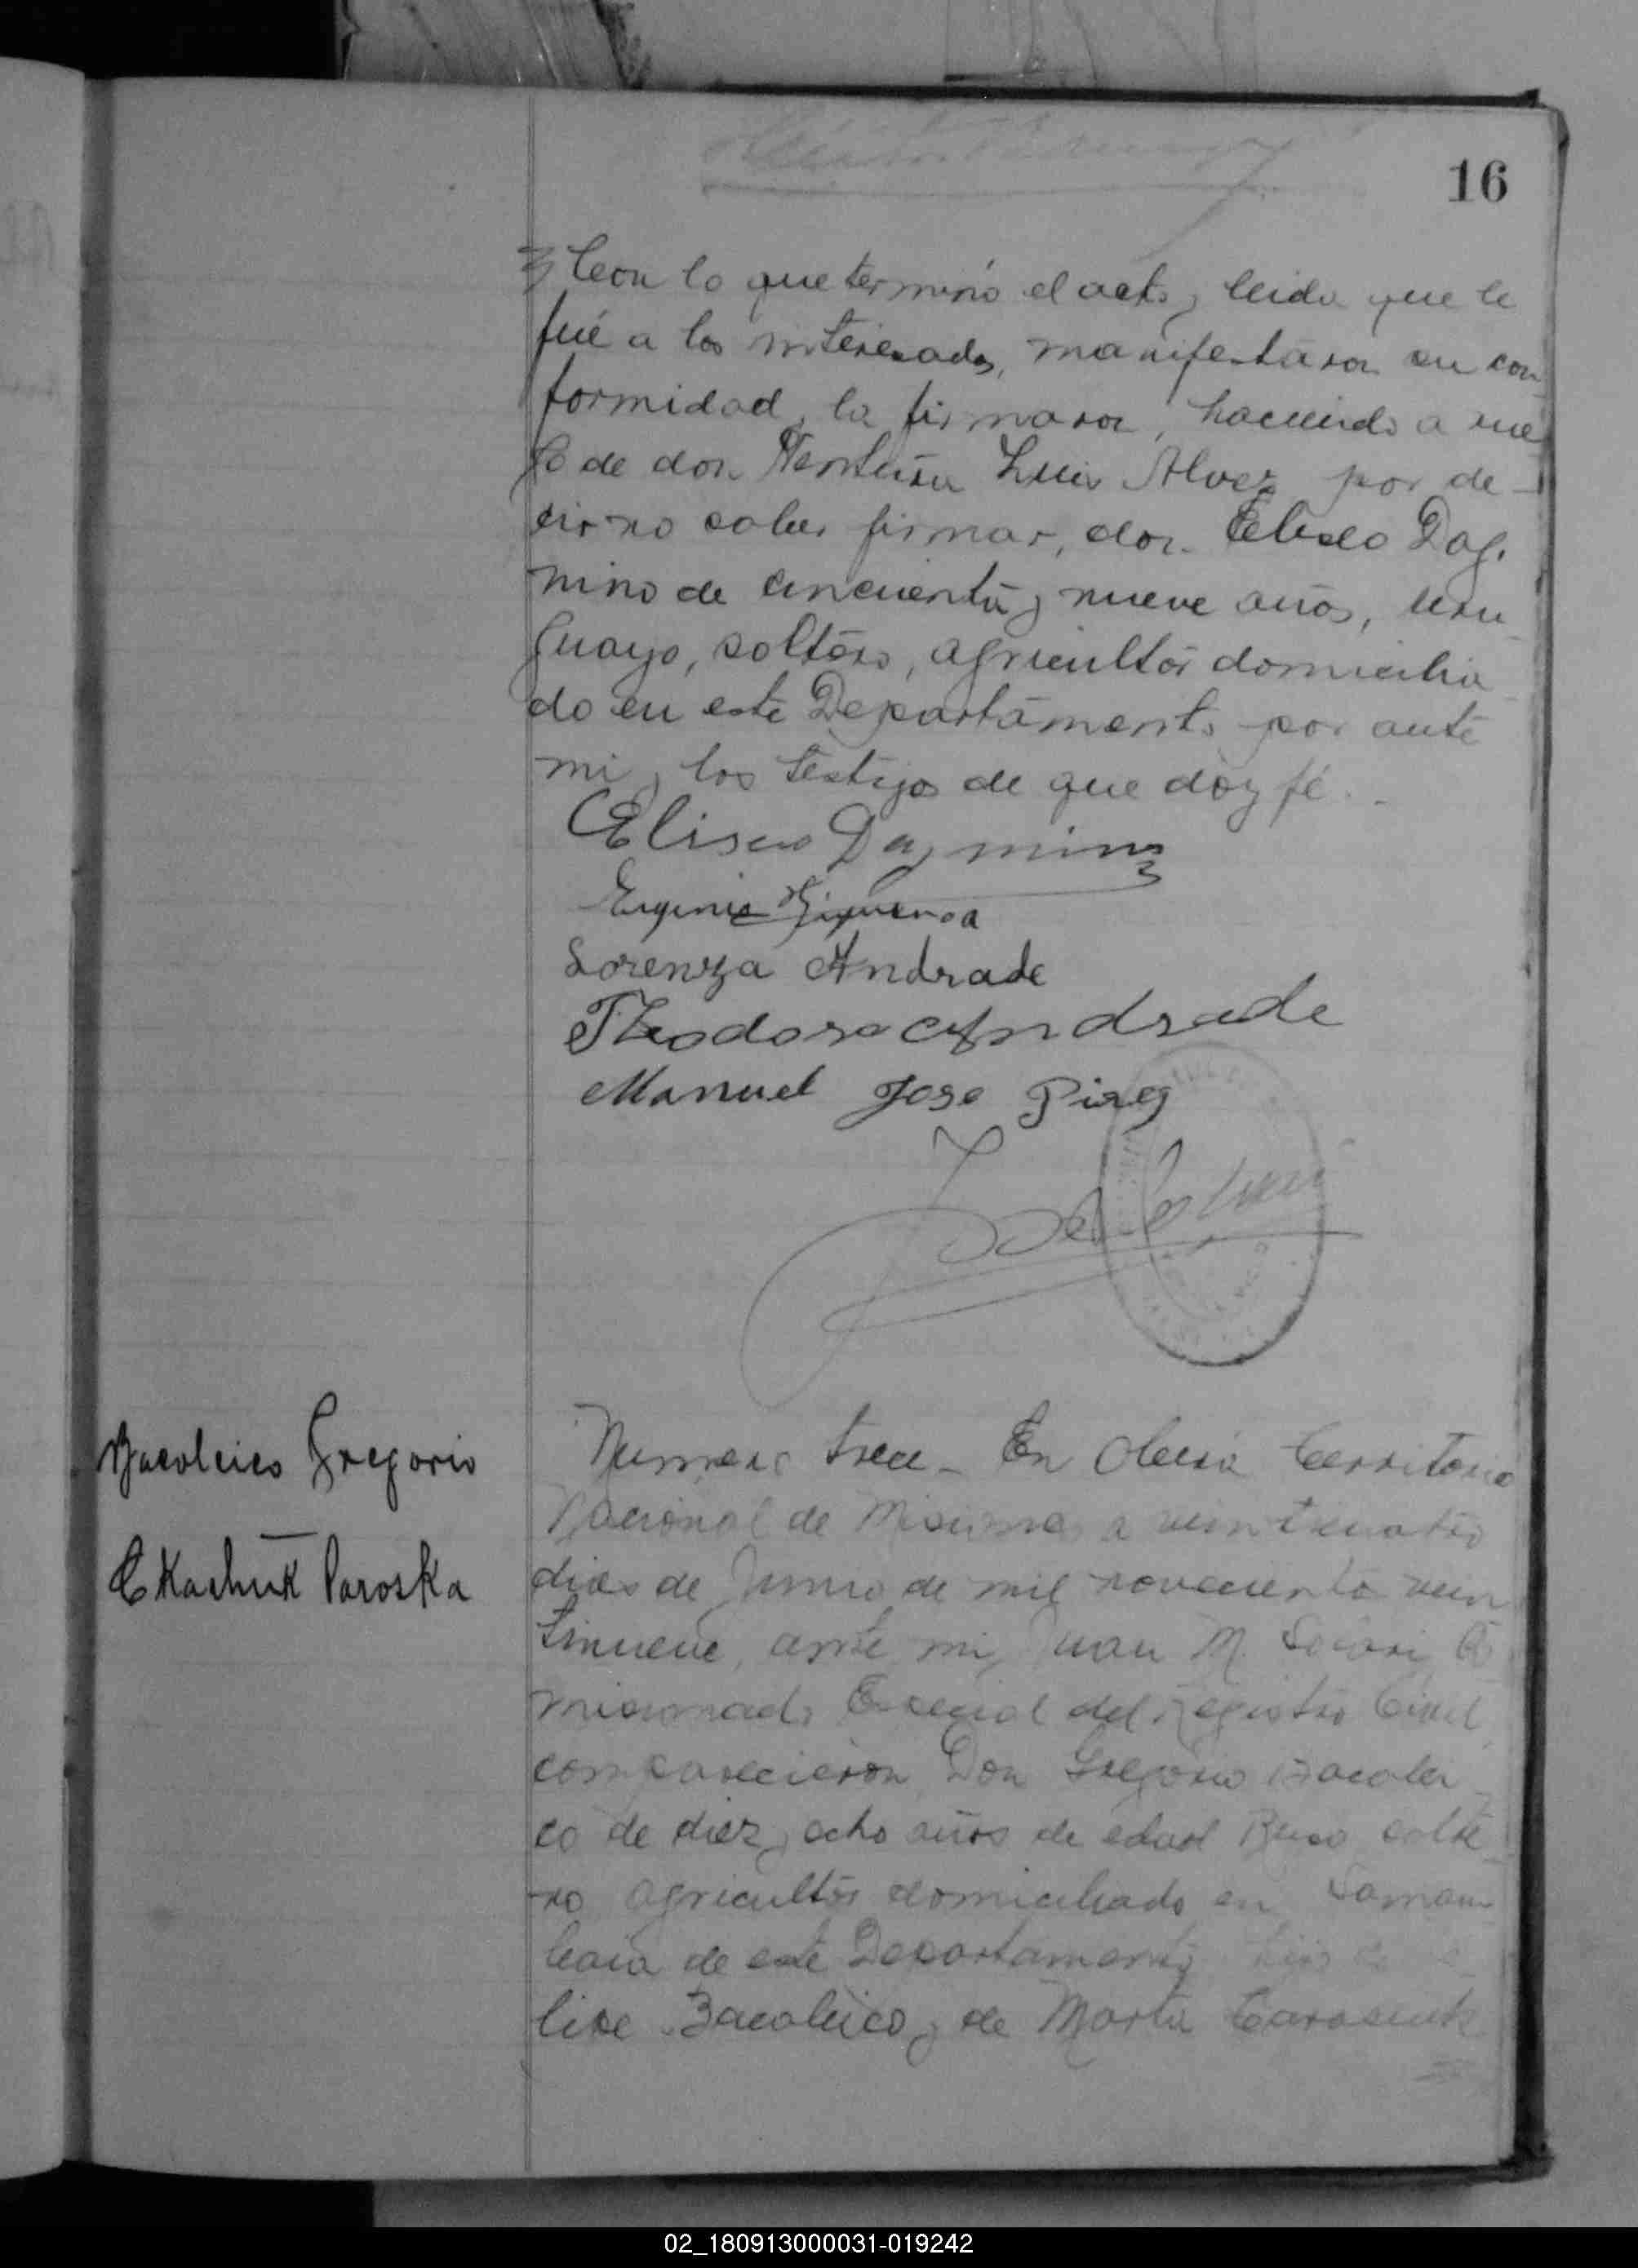 16
Con lo que terminó el acto y leida que le
fué a los interesados, manifestaron su con
formidad, la firmaron, haciendo a rue
go de don Ventura Luis Alvez por de-
cir no saber firmar, don Eliseo Dag-
nino de cincuenta y nueve años, uru
guayo, soltero, agricultor domicilia
do en este Departamento por ante
mi y los testigos de que doy fé.
Eliseo Dagnino
Eugenio
Lorenza Andrade
Theodora Andrade
Manuel Jose Pires
Bacoleico Gregorio
Tkachuk Paroska
Numero trece - En Oberá Territorio
Nacional de Misiones a veinticuatro
dias de Junio de mil novecientos vein
tinueve, ante mi, Juan M. Co
misionado Especial del Registro Civil
comparecieron Don Gregorio Bacolei
co de diez y ocho años de edad Ruso solte
ro agricultor domiciliado en Samam
baia de este Departamento hijo de
Bacoleico y de Marta
02_180913000031-019242